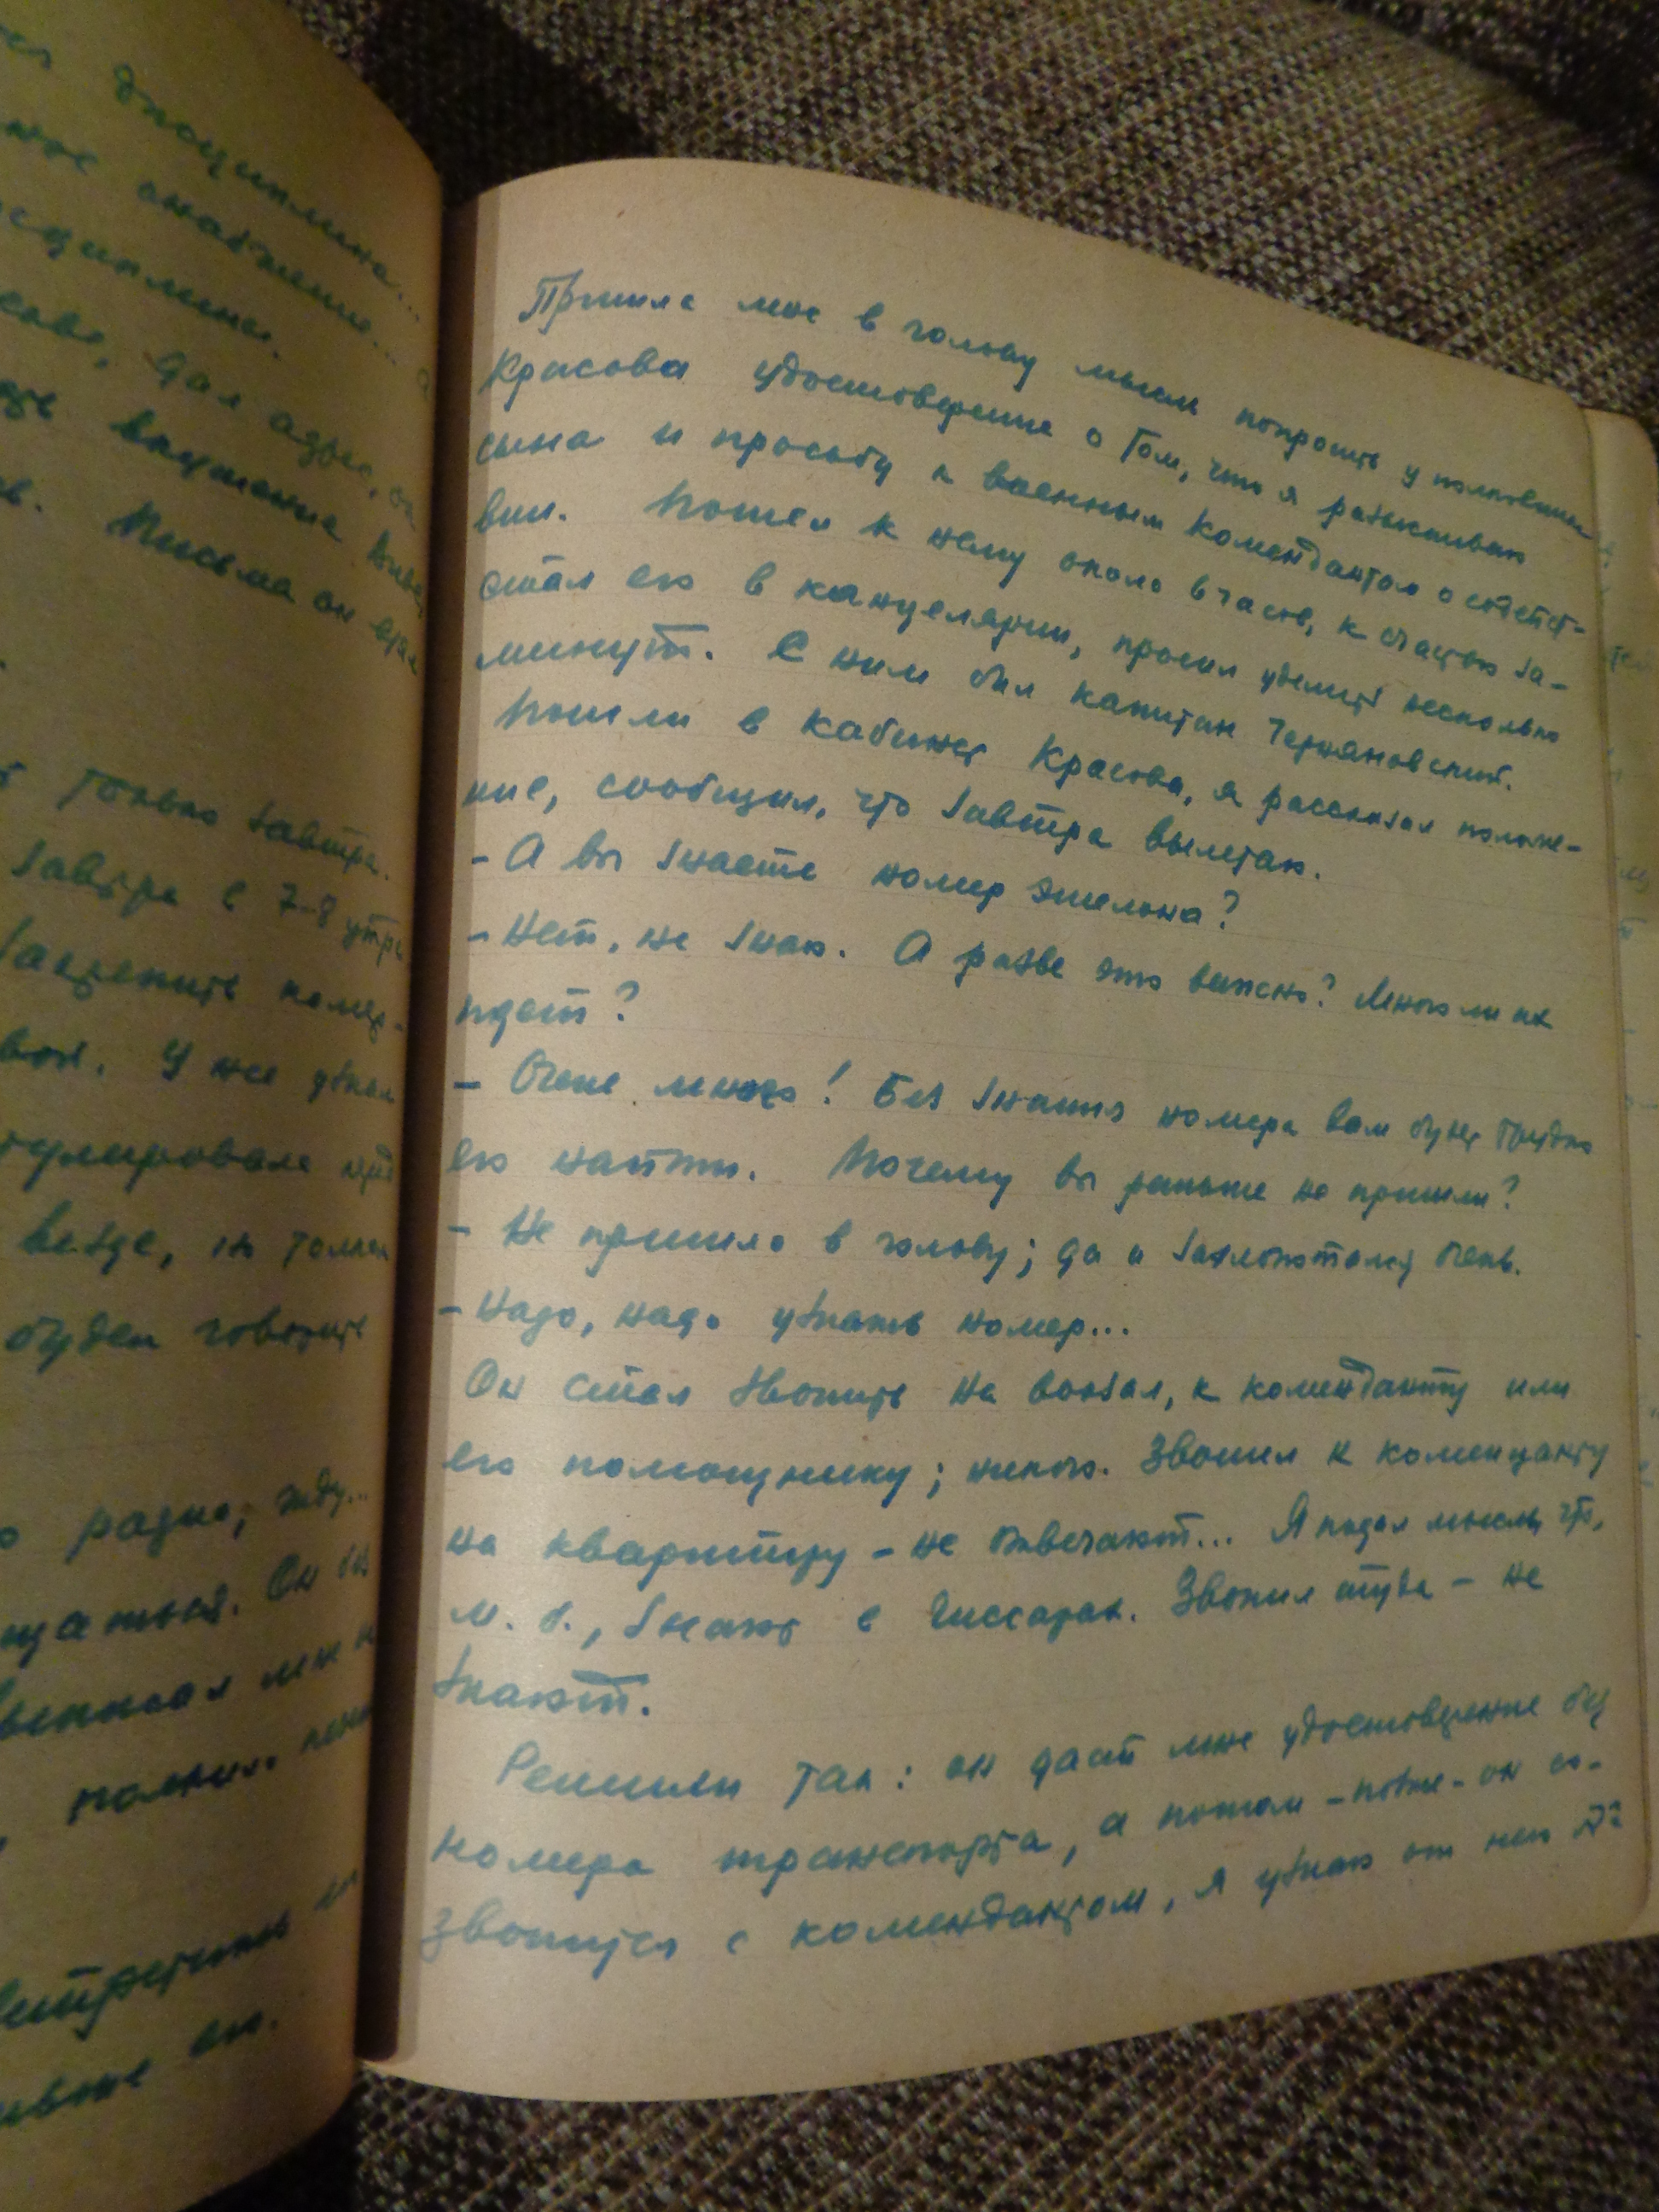 дисциплина...
снабжение... а
дисциплине.
дал адрес, он
Письма он брал
только завтра.
Завтра в 7-8 утра
закрепить номер-
У нее узнал
везде, но только
будем говорить
радио, жду...
Он был
помнил.
Пришла мне в голову мысль попросить у полковника
Красова удостоверение о том, что я разыскиваю
сына и просьбу к военным комендантам о содейст-
вии. Пошел к нему около 6 часов, к счастью за-
стал его в канцелярии, просил уделить несколько
минут. С ним был капитан Черняновский.
Пошли в кабинет Красова, я рассказал положе-
ние, сообщил, что завтра вылетаю.
- А вы знаете номер эшелона?
- Нет, не знаю. А разве это важно? Много ли их
идет?
- Очень много! Без знания номера вам будет трудно
его найти. Почему вы раньше не пришли?
- Не пришло в голову; да и захлопотался очень.
- Надо, надо узнать номер...
Он стал звонить на вокзал, к коменданту или
его помощнику; никого. Звонил к коменданту
на квартиру - не отвечают... Я подал мысль, что,
м. б., знают в Гиссарах. Звонил туда - не
знают.
Решили так: он даст мне удостоверение без
номера транспорта, а потом - позже - он со-
звонится с комендантом, я узнаю от него №